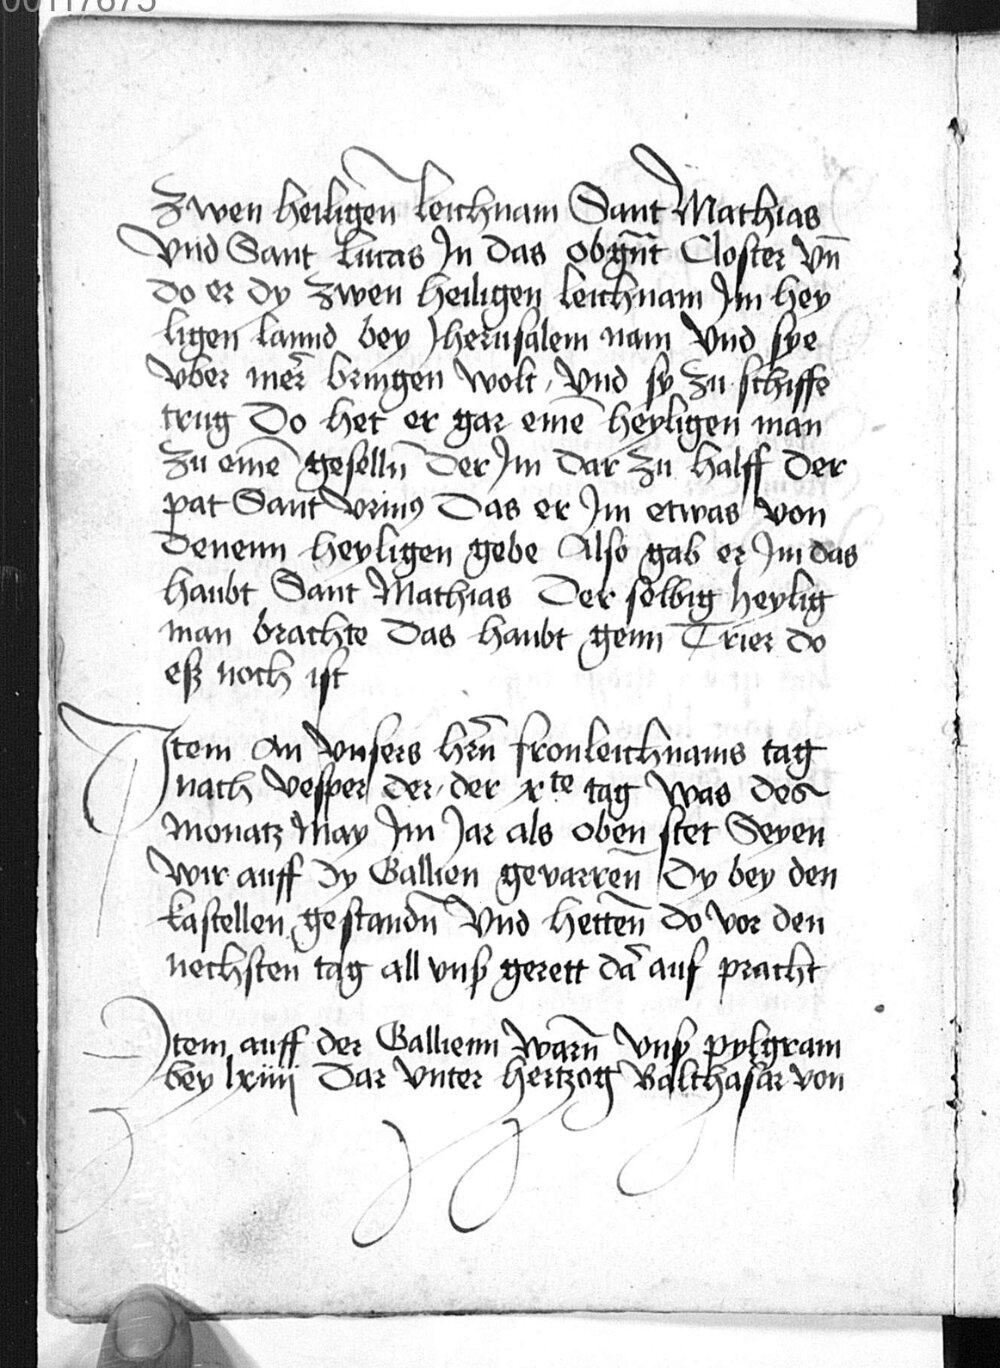 00117675
zwen heiligen leichnam Sant Mathias
vnd Sant Lucas Jn das obgn̄t Closter vn̄
do er dy zwen heiligen leichnam Jm hey
ligen lannd bey Jherusalem nam vnd sye
vber mer̄ bringen wolt, vnd sy zu schiffe
trug Do het er gar eine̅ heyligen man
zu eine̅ geselln̄ Der Jm dar zu halff der
pat Sant vrinꝰ Das er Jm etwas von
denenn heyligen gebe Also gab er Jm das
haubt Sant Mathias Der selbig heylig
man brachte das haubt genn Trier do
eß noch ist
Jtem An vnsers hrn̄ fronleichnams tag
nach vesper der, der xte tag was des
monatz May Jm Jar als oben stet Seyen
wir auff dy Gallien gevarren̄ Dy bey den
kastellen gestandn̄ vnd hetten̄ do vor den
nechsten tag all vnß gerett da᷑ auf pracht
Jtem auff der Gallienn warn̄ vnß pylgram
bey lxiiij Dar vnter hertzog Balthasar von